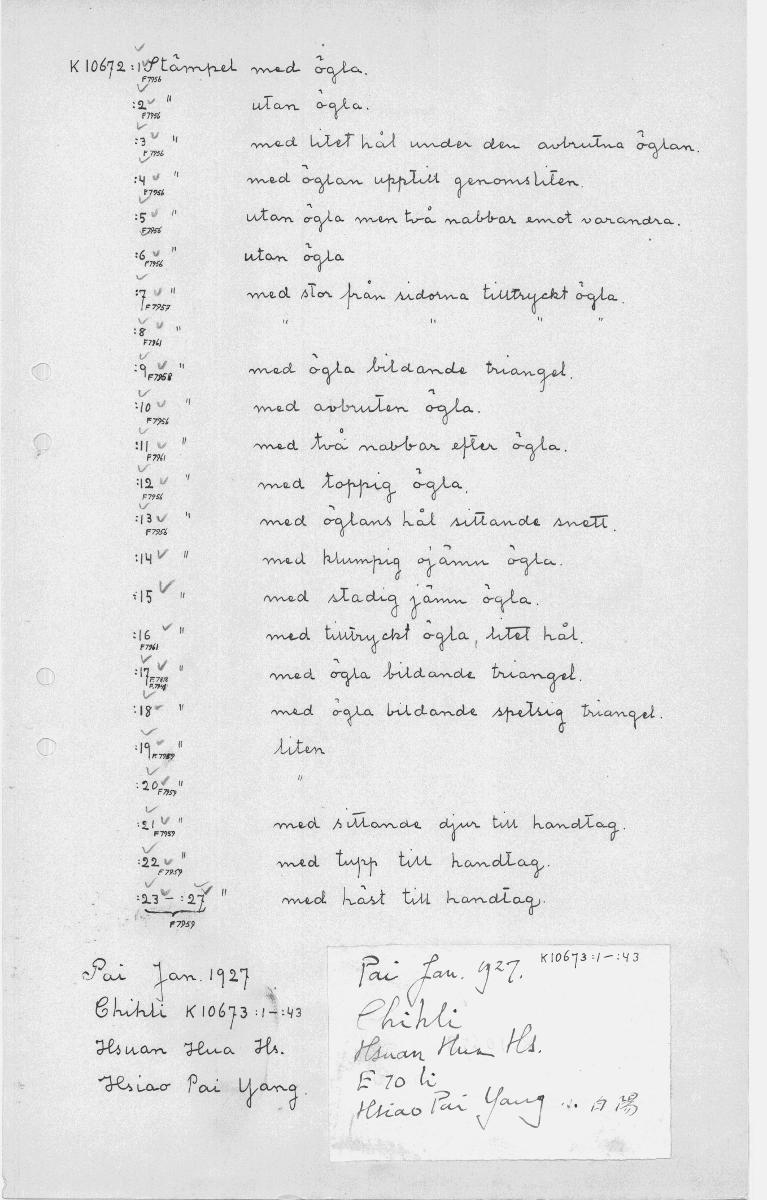 K10672:1 Stämpel med ögla.
F7956
:2 " utan ögla.
F7956
:3 " med litet hål under den avbrutna öglan.
F7956
:4 " med öglan upptill genomsliten.
F7956
:5 " utan ögla men två nabbar emot varandra.
F7956
:6 " utan ögla
F7956
:7 " med stor från sidorna tilltryckt ögla.
F7957
:8 " " " " "
F7961
:9 " med ögla bildande triangel.
F7958
:10 " med avbruten ögla.
F7956
:11 " med två nabbar efter ögla.
F7961
:12 " med toppig ögla.
F7956
:13 " med öglans hål sittande snett.
F7956
:14 " med klumpig ojämn ögla.
:15 " med stadig jämn ögla.
:16 " med tilltryckt ögla, litet hål.
F7961
:17 " med ögla bildande triangel.
:18 " med ögla bildande spetsig triangel.
:19 " liten
F7959
:20 " "
F7959
:21 " med sittande djur till handtag.
F7959
:22 " med tupp till handtag.
F7959
:23 – :27 " med häst till handtag.
F7959
Pai Jan. 1927
Chihli K10673:1–:43
Hsuan Hua Hs.
Hsiao Pai Yang.
K10673:1–:43
Pai Jan. 1927.
Chihli
Hsuan Hua Hs.
E 70 li
Hsiao Pai Yang 小白陽